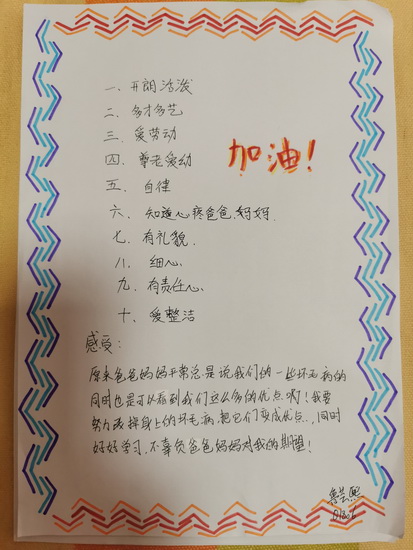 一、开朗活泼
二、多才多艺
三、爱劳动
加油！
四、尊老爱幼
五、自律
六、知道心疼爸爸、妈妈
七、有礼貌
八、细心
九、有责任心
十、爱整洁
感受：
原来爸爸妈妈平常总是说我们的一些坏毛病的
同时也是可以看到我们这么多的优点啊！我要
努力改掉身上的坏毛病把它们变成优点，同时
好好学习，不辜负爸爸妈妈对我的期望！